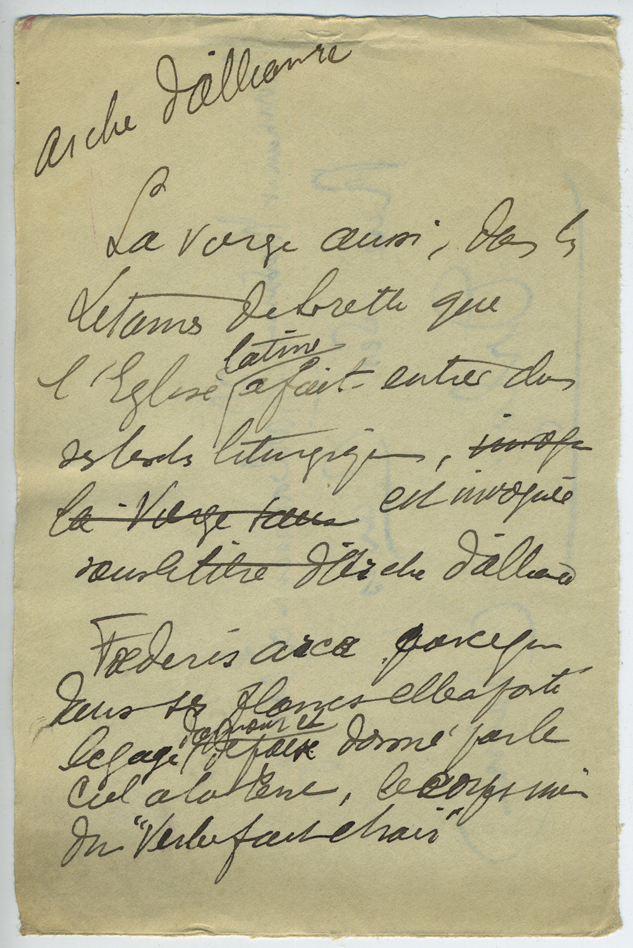 arche d'alliance
La vierge aussi, dans les
Litanies de Lorette que
latine
l'Eglise a fait entrer dans
ses textes liturgiques, invoque
la Vierge sous est invoquée
sous le titre d'Arche d'alliance
Fœderis arca parceque
dans ses flancs elle a porté
d'amour et
le gage de paix donné par le
ciel a la terre, le corps
du "Verbe fait chair"